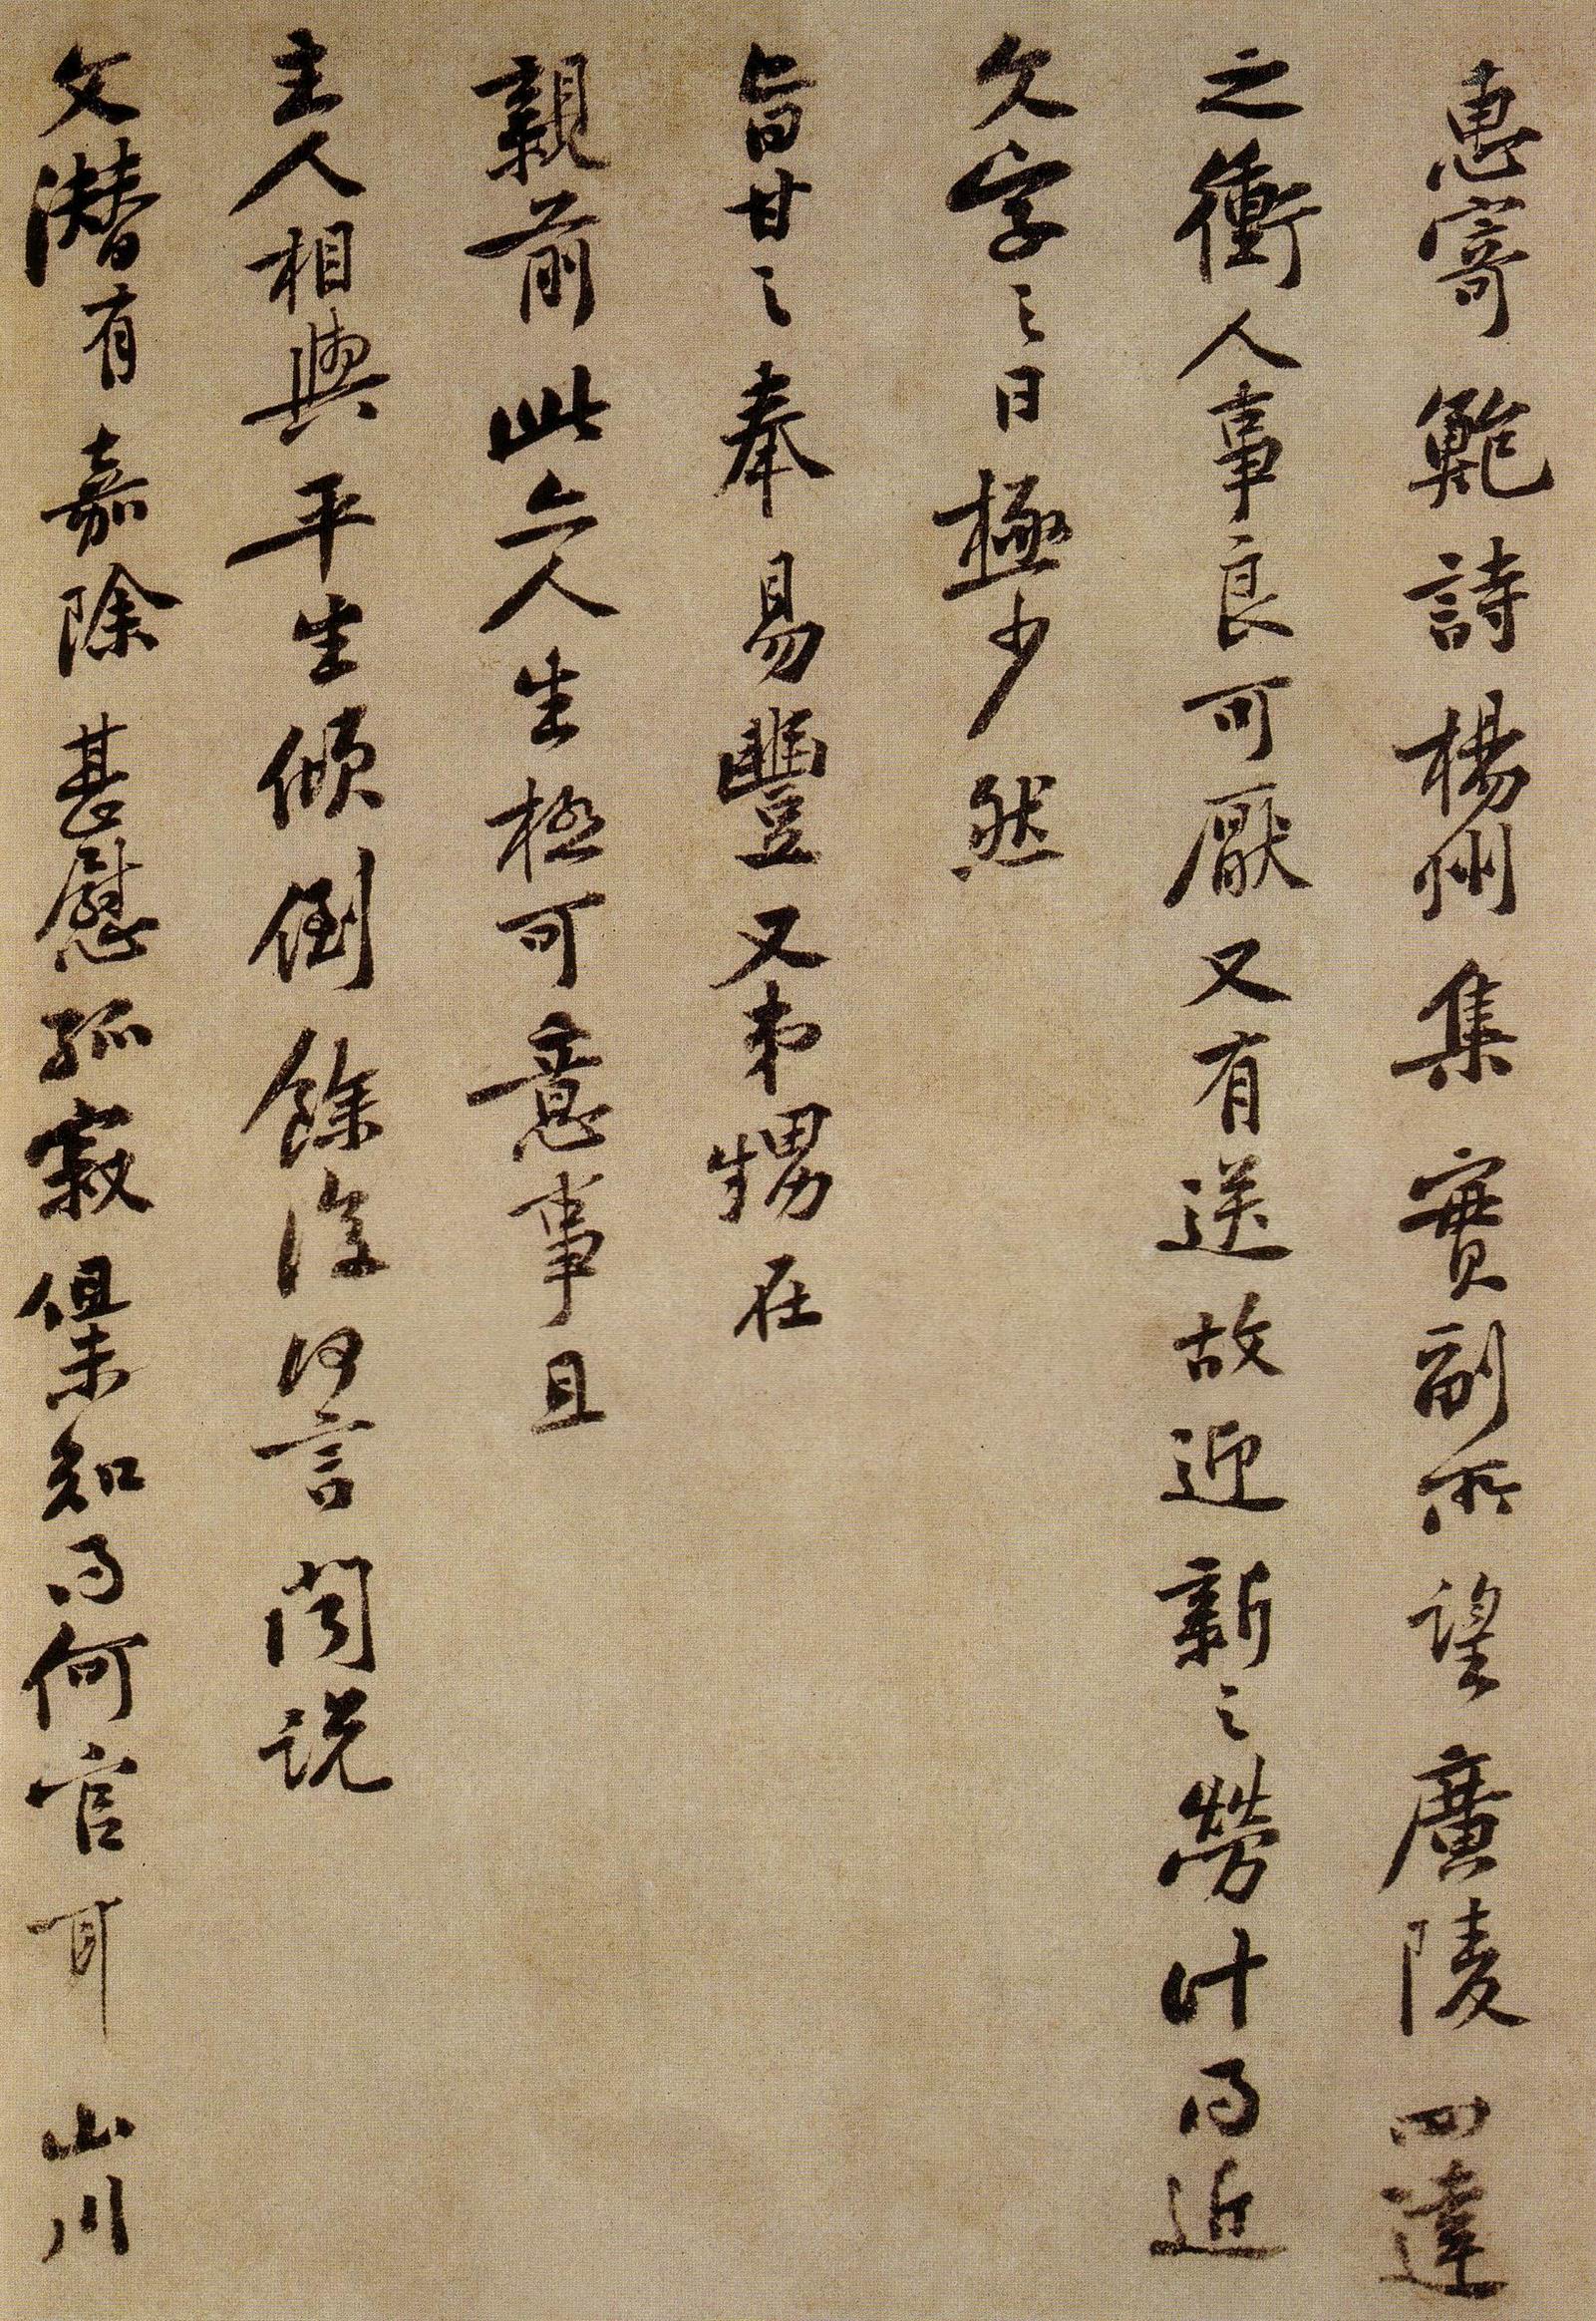 惠寄鮑詩楊州集實副所望廣陵四達
之衝人事良可厭又有送故迎新之勞計得近
文字之日極少然
旨甘之奉易豐又弟甥在
親前此亦人生極可意事且
主人相與平生傾倒餘復何言聞說
文潛有嘉除甚慰孤寂但未知得何官耳山川